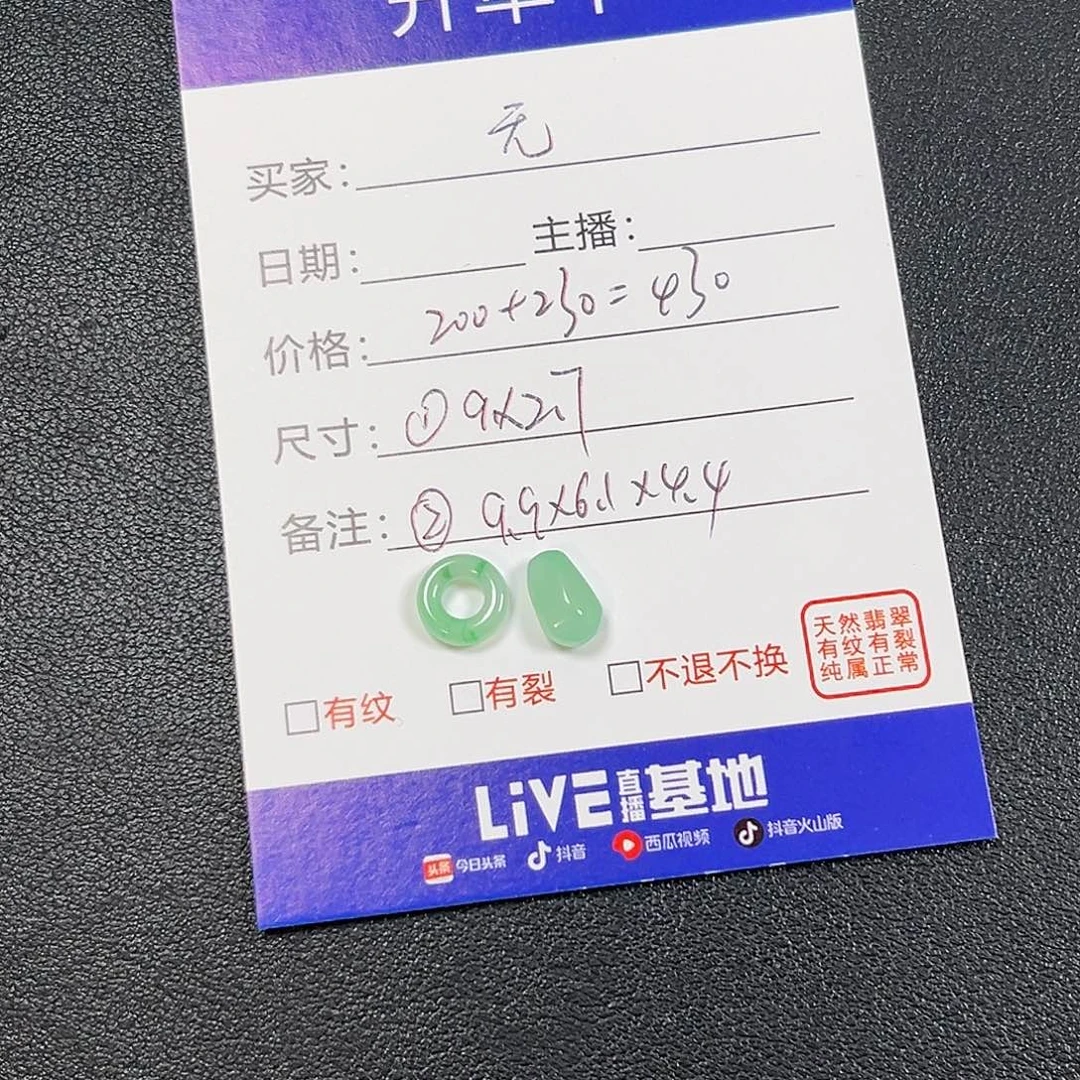 买家: 无
日期: 主播:
价格: 200+230=430
尺寸: ①9×2.7
备注: ②9.9×6.1×4.4
天然翡翠
有纹有裂
纯属正常
□有纹 □有裂 □不退不换
LiVE直播基地
头条 今日头条 抖音 西瓜视频 抖音火山版